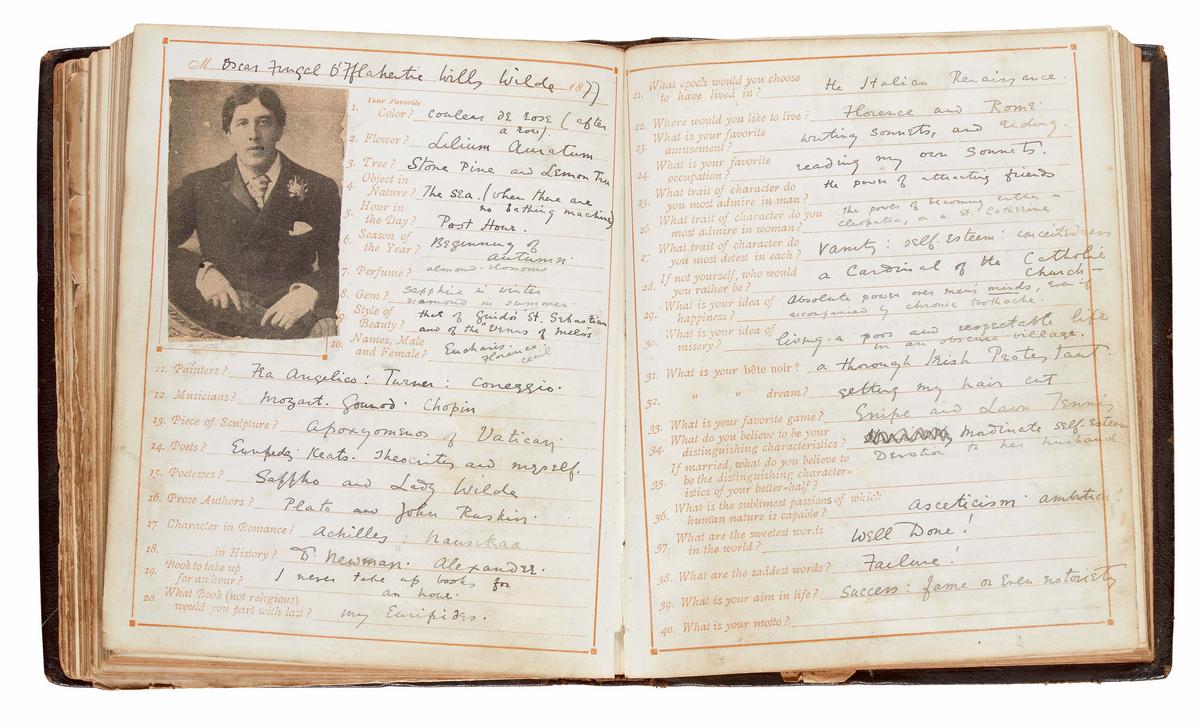 M Oscar Fingal O'Fflahertie Wills Wilde 1877
Your Favorite
1. Color? couleur de rose (after
a row).
2. Flower? Lilium Auratum
3. Tree? Stone Pine and Lemon Tree
4. Object in
Nature? The sea. (when there are
no bathing machines)
5. Hour in
the Day? Post Hour.
6. Season of
the Year? Beginning of
autumn.
7. Perfume? almond-blossoms
8. Gem? sapphire in winter
diamond in summer.
9. Style of
Beauty? that of Guido's St. Sebastian
and of the "Venus of Melos"
10. Names, Male
and Female? Eucharis.
Florence
Cecil
11. Painters? Fra Angelico: Turner: Correggio.
12. Musicians? Mozart. Gounod. Chopin
13. Piece of Sculpture? Apoxyomenos of Vatican
14. Poets? Euripides, Keats. Theocritus and myself.
15. Poetesses? Sappho and Lady Wilde
16. Prose Authors? Plato and John Ruskin.
17 Character in Romance? Achilles: Nausikaa
18. in History? Dr Newman. Alexander.
19. Book to take up
for an hour? I never take up books for
an hour.
20. What Book (not religious)
would you part with last? my Euripides.
21. What epoch would you choose
to have lived in? the Italian Renaissance.
22. Where would you like to live? Florence and Rome.
23. What is your favorite
amusement? writing sonnets, and riding.
24. What is your favorite
occupation? reading my own sonnets.
25. What trait of character do
you most admire in man? the power of attracting friends
26. What trait of character do you
most admire in woman? the power of becoming either a
Cleopatra, or a St. Catherine
27. What trait of character do
you most detest in each? Vanity: self-esteem: conceitedness
28. If not yourself, who would
you rather be? a Cardinal of the Catholic
Church-
29. What is your idea of
happiness? Absolute power over men's minds, even if
accompanied by chronic toothache.
30. What is your idea of
misery? living a poor and respectable life
in an obscure village.
31. What is your bête noir? a thorough Irish Protestant.
32. " " dream? getting my hair cut
33. What is your favorite game? Snipe and Lawn Tennis
34. What do you believe to be your
distinguishing characteristics? Inordinate self-esteem
35. If married, what do you believe to
be the distinguishing character=
istics of your better=half? Devotion to her husband
36. What is the sublimest passions of which
human nature is capable? asceticism. ambition.
37; What are the sweetest words
in the world? Well Done!
38. What are the saddest words? Failure!
39. What is your aim in life? Success: fame or even notoriety
40. What is your motto?